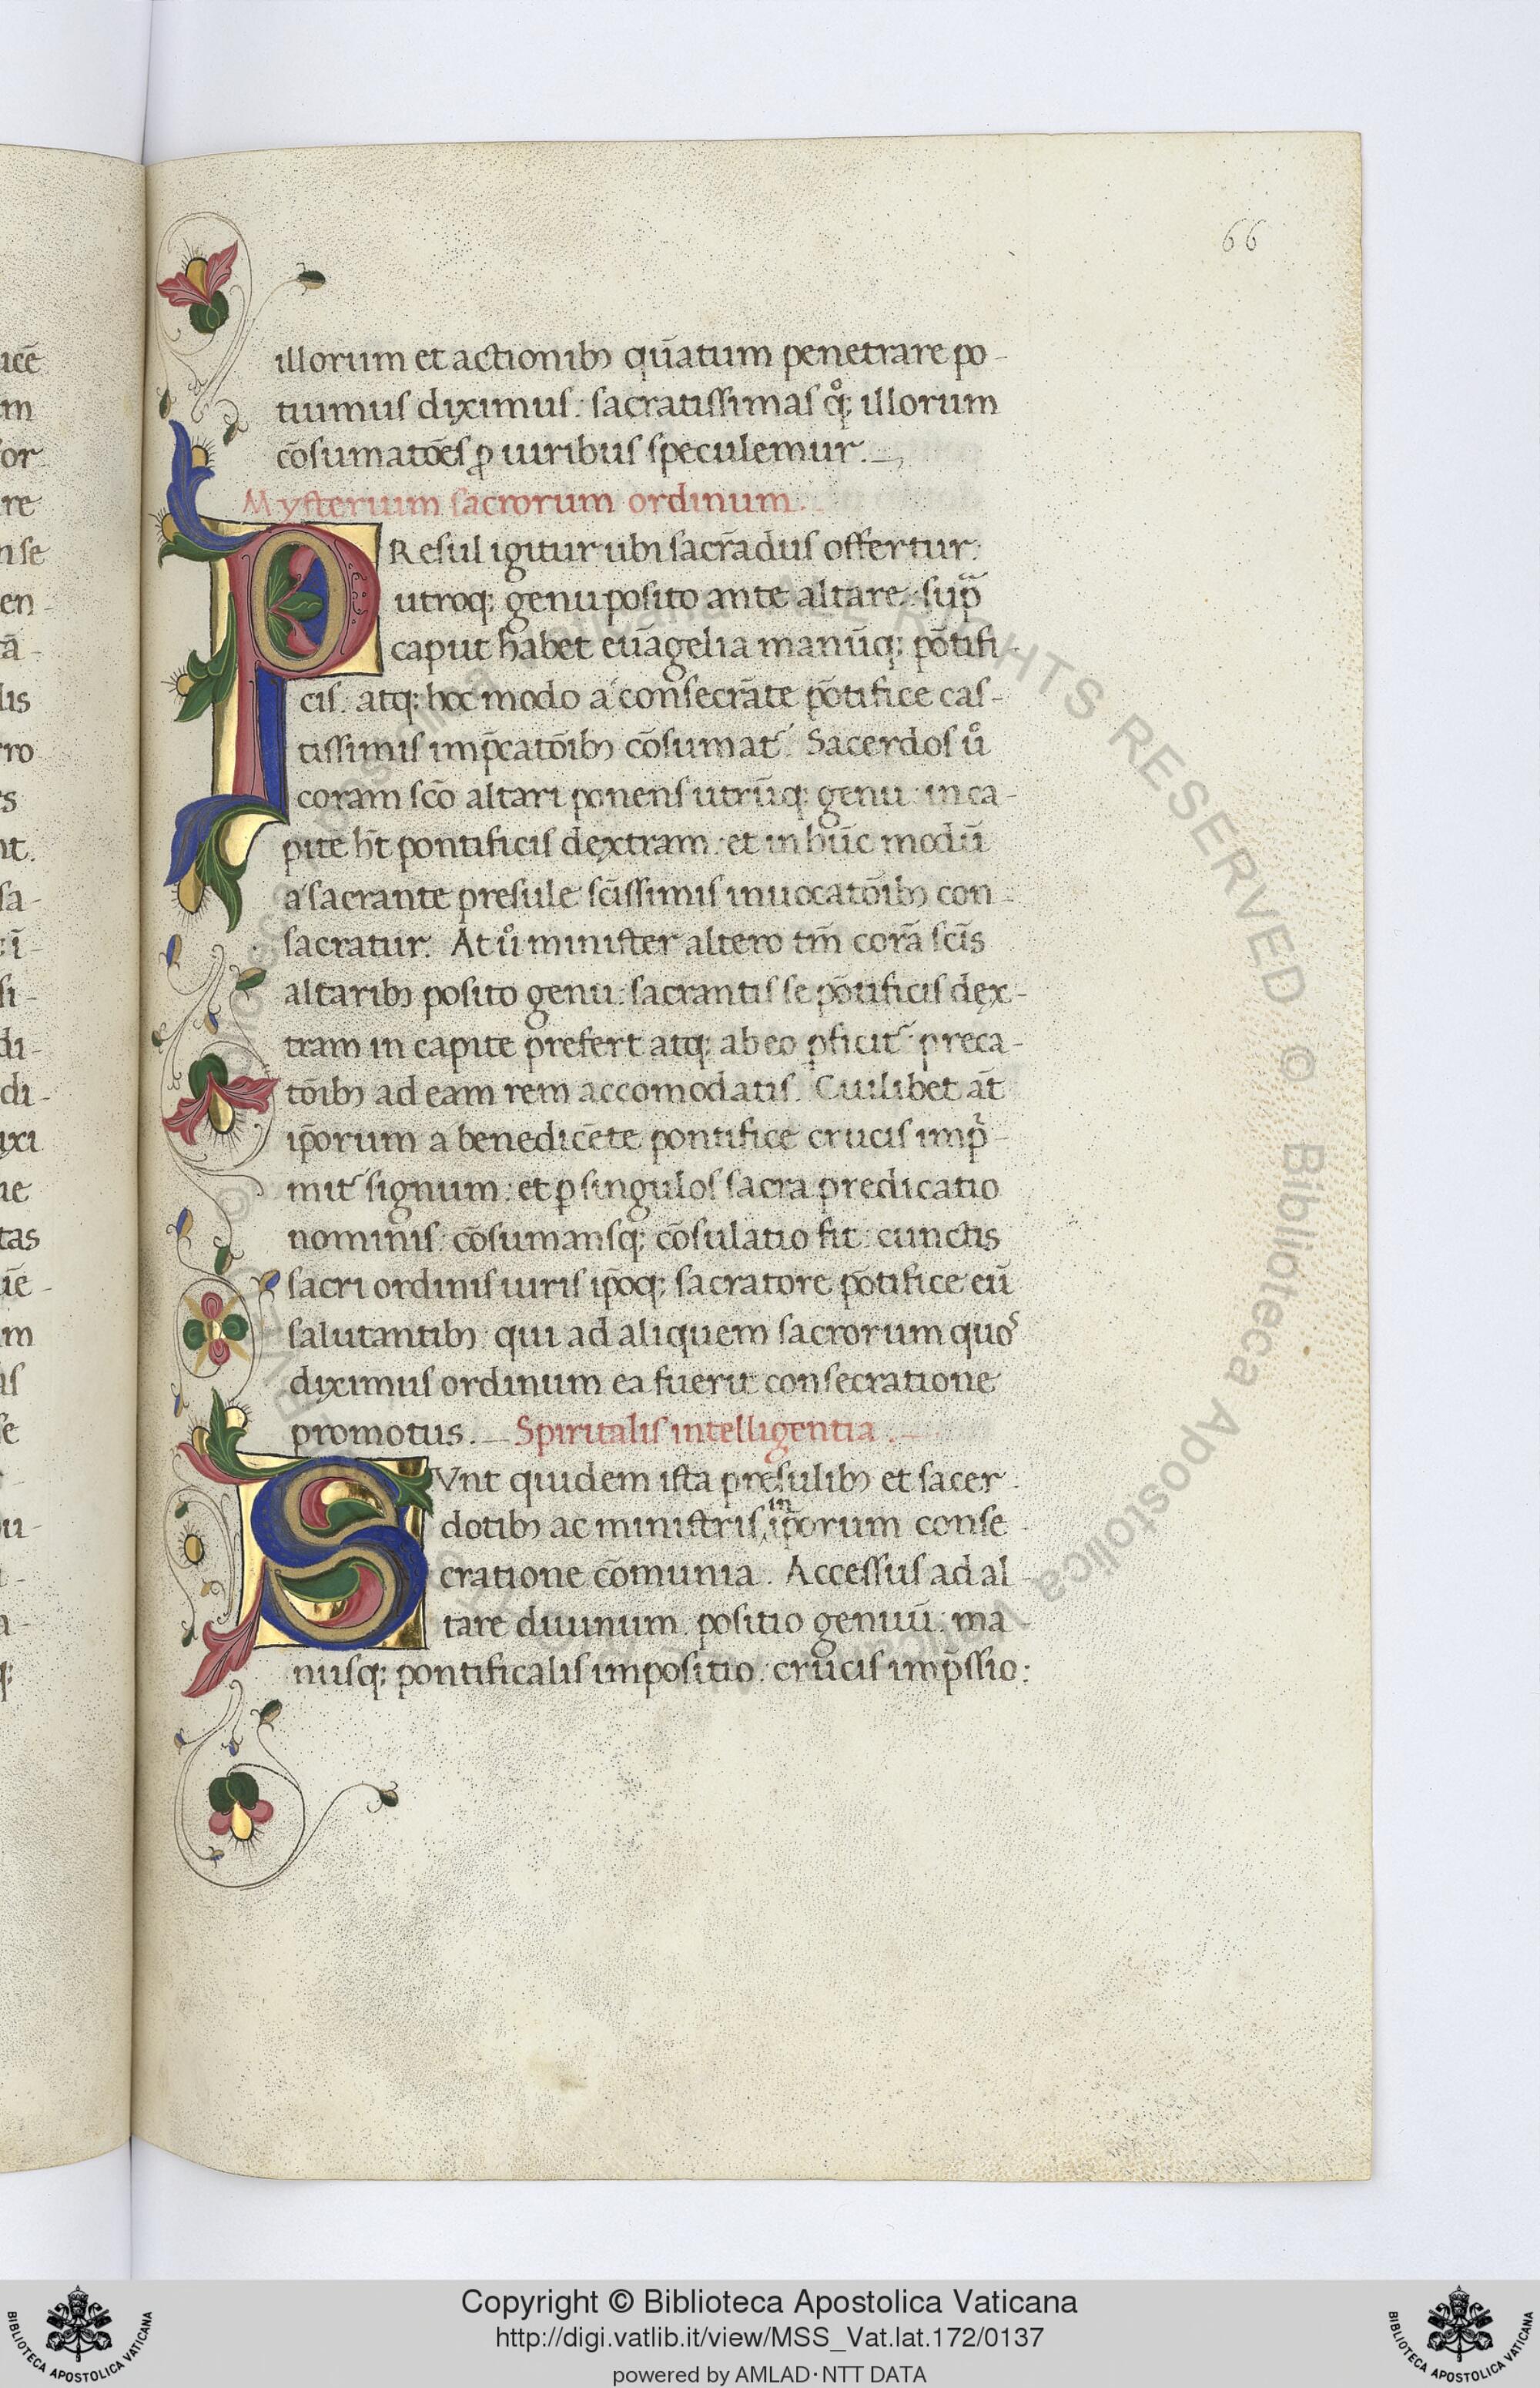 66
illorum et actionibꝫ qūatum penetrare po-
tuimus diximus: sacratissimas qͦꝫ illorum
cōsumatōes ꝓ uiribus speculemur.
Mysterium sacrorum ordinum.
PResul igitur ubi sacrādus offertur:
utroqꝫ genu posito ante altare: sup̄
caput habet eūagelia manūqꝫ pōtifi-
cis. atqꝫ hoc modo a consecrāte pōtifice cas-
tissimis imp̄catōibꝫ cōsumat᷑. Sacerdos uͦ
coram scō altari ponens utrūqꝫ genu: in ca-
pite ht̄ pontificis dextram: et in hūc modū
a sacrante presule scīssimis inuocatōibꝫ con-
sacratur. At uͦ minister altero tm̄ corā scīs
altaribꝫ posito genu: sacrantis se pōtificis dęx-
tram in capite prefert atqꝫ ab eo ꝑficit᷑ preca-
tōibꝫ ad eam rem accomodatis. Cuilibet āt
ip̄orum a benedicēte pontifice crucis impͥ-
mit᷑ signum: et ꝑ singulos sacra predicatio
nominis: cōsumansqꝫ cōsulatio fit: cunctis
sacri ordinis uiris ip̄oqꝫ sacratore pōtifice eū
salutantibꝫ qui ad aliquem sacrorum quos
diximus ordinum ea fuerit consecratione
promotus. Spiritalis intelligentia.
SVnt quidem ista presulibꝫ et sacer-
dotibꝫ ac ministris in ip̄orum conse-
cratione cōmunia. Accessus ad al-
tare diuinum. positio genuū: ma-
nusqꝫ pontificalis impositio: crucis imp̄ssio:
ucē
m
or
re
nse
en-
ā-
lis
ro
s
nt.
sa-
ī-
si-
di-
di-
ixi
ne
tas
uē-
m
is
se
u-
qꝫ
ALL RIGHTS RESERVED © Biblioteca Apostolica Vaticana
Copyright © Biblioteca Apostolica Vaticana
http://digi.vatlib.it/view/MSS_Vat.lat.172/0137
powered by AMLAD·NTT DATA
BIBLIOTECA APOSTOLICA VATICANA
BIBLIOTECA APOSTOLICA VATICANA